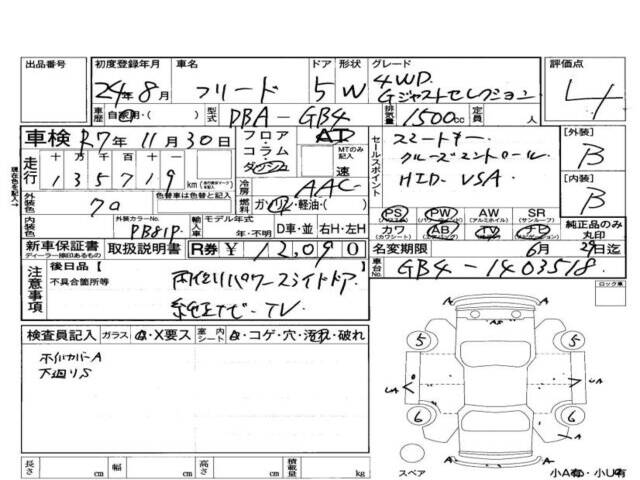 出品番号 初度登録年月 車名 ドア 形状 グレード 評価点
24年8月 フリード 5 W 4WD. Gジャストセレクション 4
車歴 自家用・( ) 型式 DBA-GB4 排気量 1500cc 定員 人
車検 R7年 11月 30日 フロア・コラム・ダッシュ AT MTのみ記入 速
走行 十 万 千 百 十 一
135719 km
セールスポイント スマートキー
クルーズコントロール
HID-VSA
[外装] B
[内装] B
冷房 AAC
外装色 7a 色替車は色替前の色を記入
燃料 ガソリン・軽油・( )
内装色 外装カラーNo. PB81P 輸入車 モデル年式 年・不明 D車・並 右H・左H
PS PW AW SR
(アルミホイル) (サンルーフ)
カワ AB TV
(カワシート)
純正品のみ丸印
新車保証書 取扱説明書 R券 ¥12,090
ディーラー捺印あるもの
名変期限 6月 29日迄
車台No. GB4-1403518
注意事項 後日品【 】
不具合箇所等 両側パワースライドドア
純正ナビ-TV
ロック車
検査員記入 ガラス A・X要ス 室内シート 込・コゲ・穴・汚れ・破れ
ホイルカバーA
下廻りS
A A A
5 5
UA A
6 6
A
スペア 小A有・小U有
長さ cm 幅 cm 高さ cm 積載量 kg
現在色を記入→